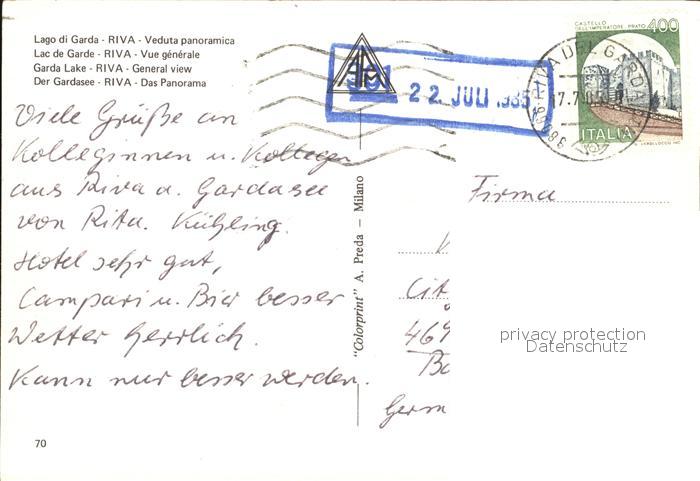 Lago di Garda - RIVA - Veduta panoramica
Lac de Garde - RIVA - Vue générale
Garda Lake - RIVA - General view
Der Gardasee - RIVA - Das Panorama
CASTELLO
DELL'IMPERATORE PRATO 400
ITALIA
RIVA DEL GARDA
22. JULI 1985
Viele Grüße an
Kolleginnen u. Kollegen
aus Riva a. Gardasee
von Rita Kühling.
Hotel sehr gut,
Campari u. Bier besser
Wetter herrlich.
Kann nur besser werden.
"Colorprint" A. Preda - Milano
Firma
Cit
469
Germ
privacy protection
Datenschutz
70